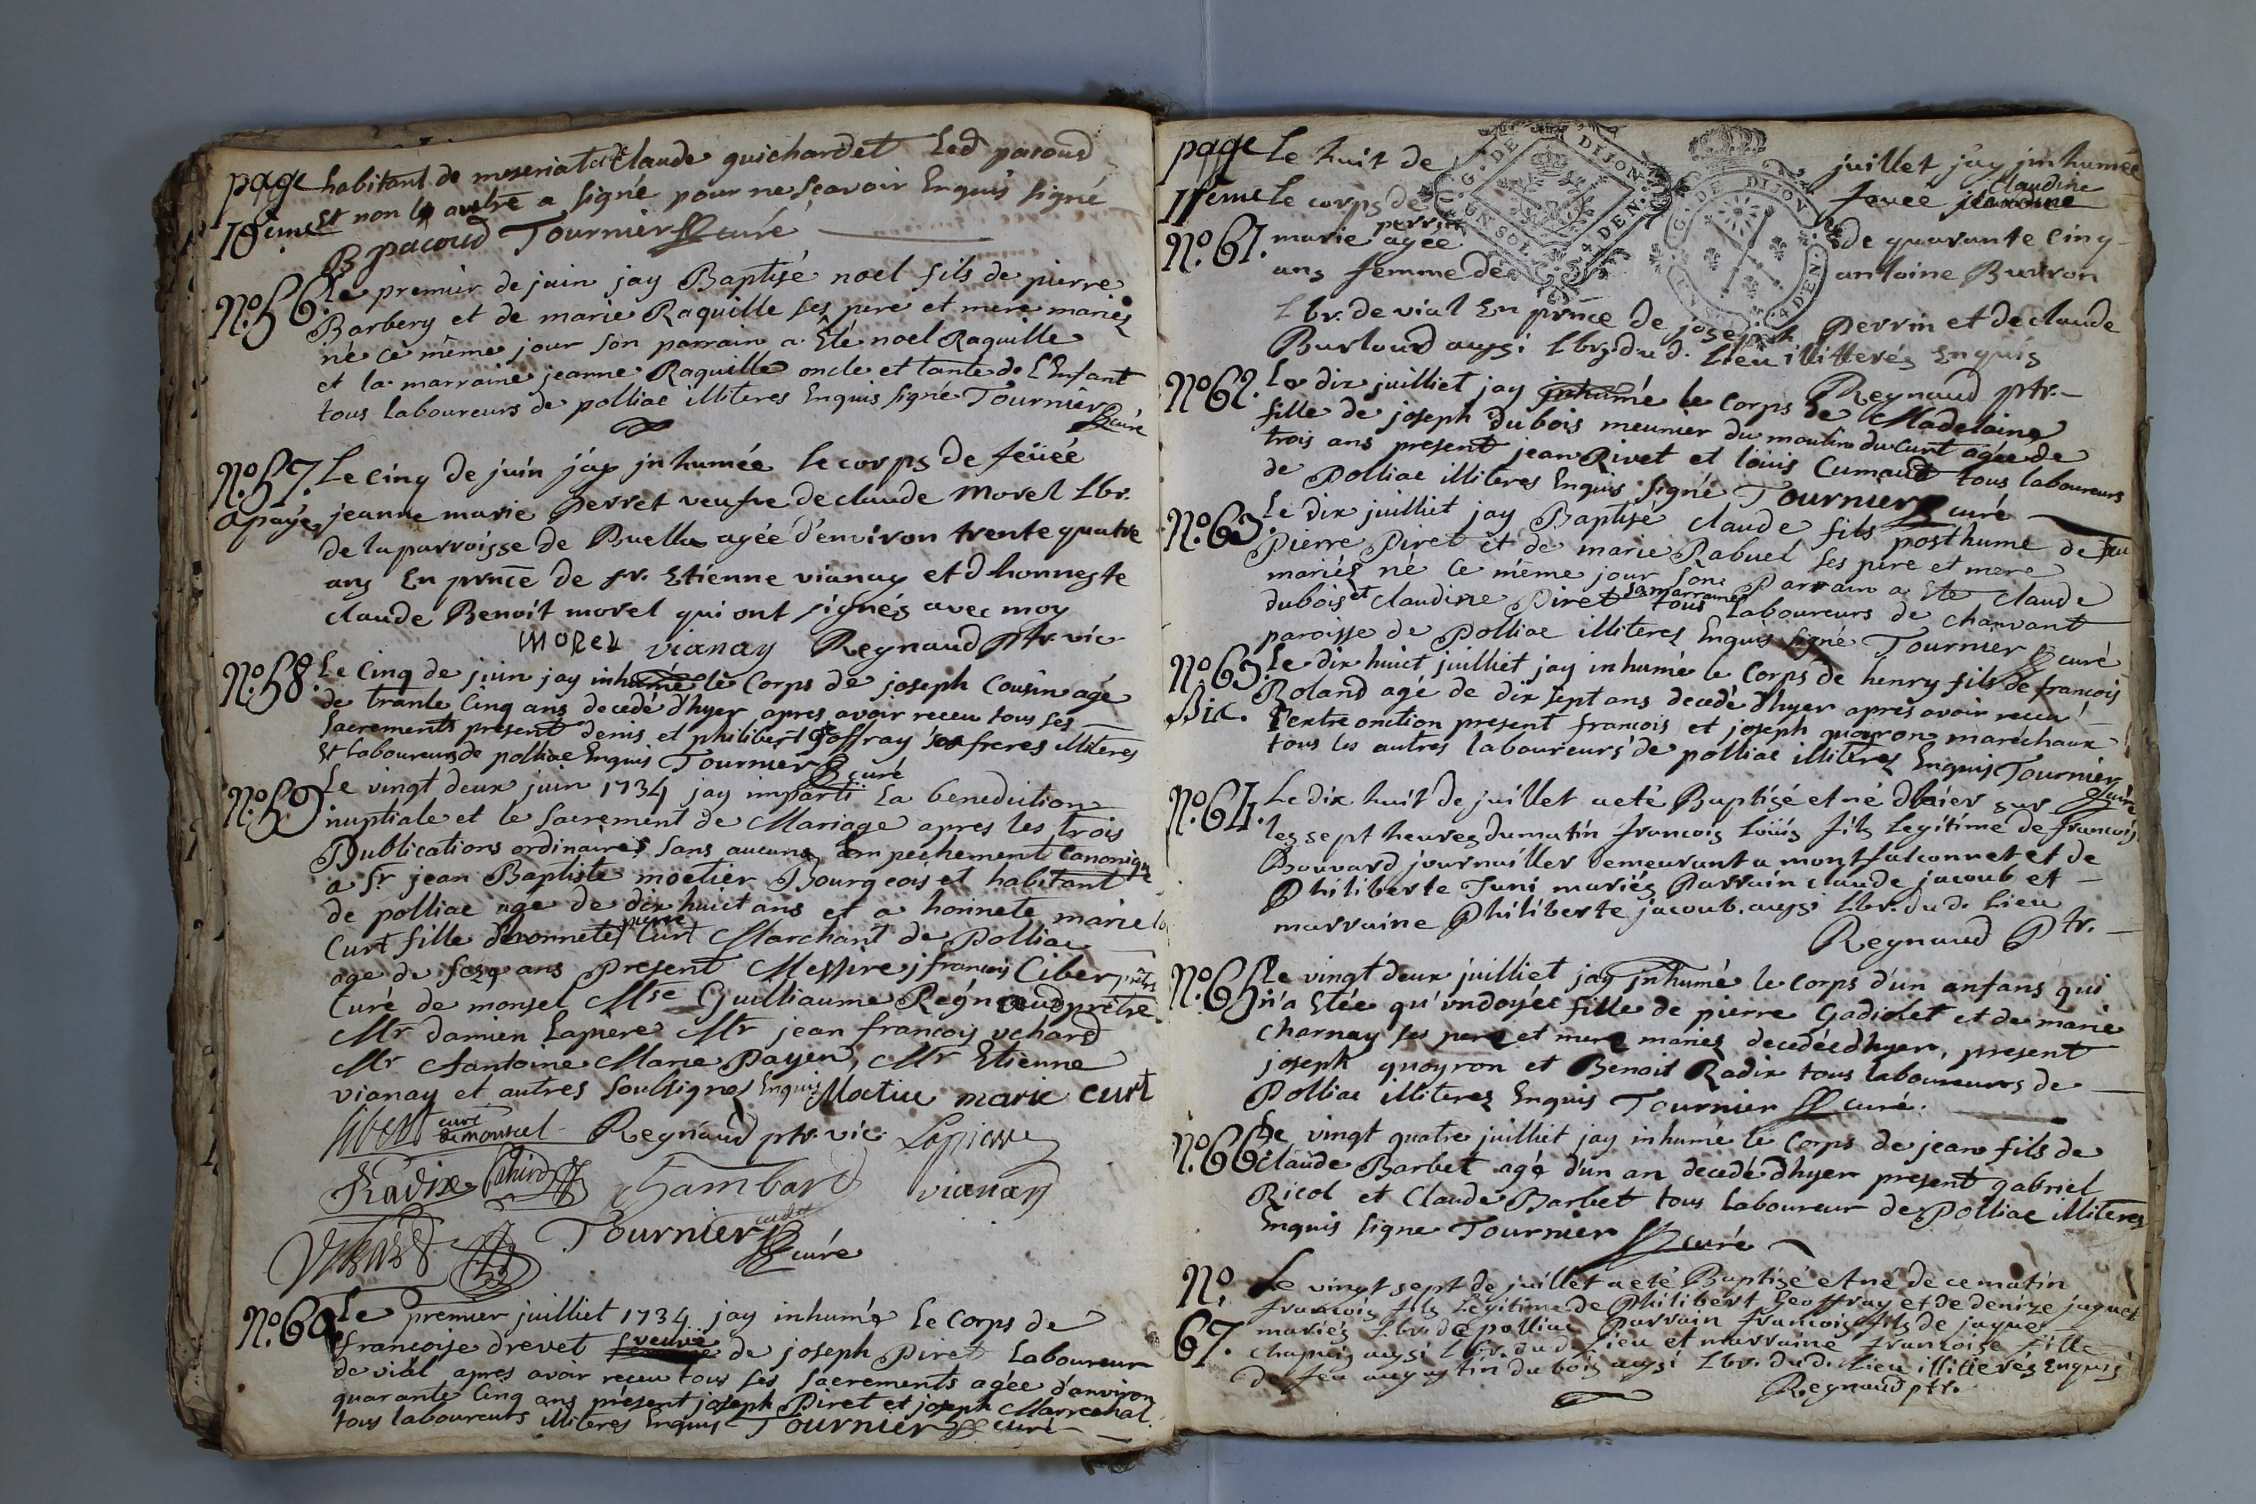 page habitant de meseriat et de claude guichardet led pacoud
10eme Et non le autre a signé pour ne scavoir Enquis signé
B pacoud Tournier curé
No. 56. Le premier de juin jay Baptisé noel fils de pierre
Barbery et de marie Raquille ses pere et mere mariéz
né ce même jour son parrain a Eté noel Raquille
et la marraine jeanne Raquille oncle et tante de l'Enfant
tous laboureurs de polliac illiteres Enquis signé Tournier
curé
No. 57. Le cinq de juin j'ay jnhumée le corps de feüée
apayéz jeanne marie perret veufve de claude morel lbr.
de la parroisse de Buella agée d'environ trente quatre
ans En prnce de sr. Etienne vianay et d honneste
claude Benoit morel qui ont signés avec moy
morel vianay Regnaud ptr. vic
No. 58. Le cinq de juin jay inhumé le corps de joseph Cousin agé
de trante cinq ans decedé d'hyer apres avoir receu tous ses
sacrements present denis et philibert joffray ses freres illiteres
Et laboureurs de polliac Enquis Tournier curé
No. 59 Le vingt deux juin 1734 jay imparti La benediction
nuptiale et le sacrement de Mariage apres les trois
Publications ordinaires sans aucuns empechement canonique
a Sr jean Baptiste moetier Bourgeois et habitant
de polliac age de dix huict ans et a honnete marie
Curt fille d'honnete pierre Curt Marchant de Polliac
age de seze ans Present Messire j francois Ciber prêtre
Curé de monsel Mse Guilliaume Regnaud prêtre
Mr damien Lapiere Mr jean francois vchard
Mr Antoine Marie Payen, Mr Etienne
vianay et autres soussignes Enquis Moetier marie curt
Sibert curé de monscel Regnaud ptr. vic. Lapierre
Radix chambard vianay
Vchard Tournier curé
No. 60. Le premier juilliet 1734 jay inhumé Le Corps de
francoise drevet veuve de joseph Piret Laboureur
de vial apres avoir receu tous ses sacrements agée d'environ
quarante cinq ans présent joseph Piret et joseph Marrechal
tous laboureurs illiteres Enquis Tournier curé
page Le huit de juillet j'ay jnhumée
11eme Le corps de feuée jeanne claudine
No. 61. marie perrin agée de quarante cinq
ans femme de antoine Buiron
G. DE DIJON. UN SOL. 4 DEN.
G. DE DIJON. 4 DEN.
Lbr. de vial En prnce de joseph perrin et de claude
Burloud aussi Lbrs du d. Lieu illitterés Enquis
Regnaud ptr.
No. 62. Le dix juilliet jay inhumé le corps de Madelaine
fille de joseph Dubois meunier du moulin du curt agée de
trois ans present jean Rivet et loüis Cumaud tous laboureurs
de Polliac illiteres Enquis signé Tournier curé
No. 63. Le dix juilliet jay Baptisé claude fils posthume de feu
Pierre Piret et de marie Pabuel ses pere et mere
mariés né ce même jour son Parrain a Ete claude
dubois et claudine Piret sa marraine tous laboureurs de charvant
paroisse de Polliac illiteres Enquis signé Tournier curé
No. 63. Le dix huict juilliet jay inhumé le Corps de henry fils de francois
Bis. Roland agé de dix sept ans decedé d'hyer apres avoir receu
l'extre onction present francois et joseph quoyron maréchaux
tous les autres laboureurs de polliac illiteres Enquis Tournier
curé
No. 64. Le dix huit de juillet a eté Baptisé et né dhier sur
les sept heures du matin francois Loüis fils Legitime de francois
Bouvard journaillier demeurant a montfalconnet et de
Philiberte Tuni mariés Parrain claude jacoub et
marraine Philiberte jacoub. aussi Lbr. du d. Lieu
Regnaud Ptr.
No. 65 Le vingt deux juilliet jay jnhumé le corps d'un anfans qui
n'a Etée qu'ondoyée fille de pierre Gadiolet et de marie
Charnay ses pere et mere mariez decedée d'hyer, present
joseph quoyron et Benoit Radix tous laboureurs de
Polliac illiteres Enquis Tournier curé.
No. 66. Le vingt quatre juilliet jay inhumé le Corps de jean fils de
claude Barbet agé d'un an decedé d'hyer present gabriel
Ricol et Claude Barbet tous Laboureur de Polliac illiteres
Enquis signe Tournier curé
No. 67. Le vingt sept de juillet a eté Baptisé et né de ce matin
francois fils Legitime de Philibert Geoffray et de denize jaquet
mariés Lbr. de polliac Parrain francois fils de jaques
chapuis aussi Lbr. du d. Lieu et marraine francoise fille
de feu augustin dubois aussi Lbr. du d. Lieu illiterés Enquis
Regnaud ptr.